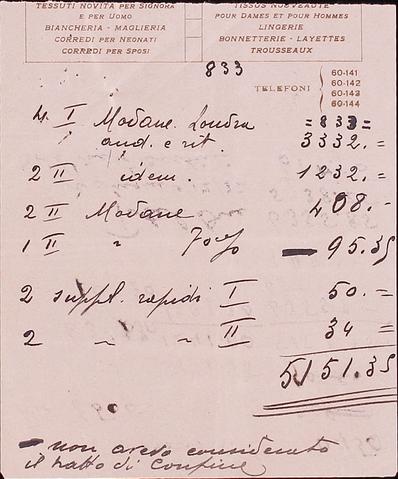 TESSUTI NOVITÀ PER SIGNORA
E PER UOMO
BIANCHERIA - MAGLIERIA
CORREDI PER NEONATI
CORREDI PER SPOSI
TISSUS NOUVEAUTÉ
POUR DAMES ET POUR HOMMES
LINGERIE
BONNETTERIE - LAYETTES
TROUSSEAUX
833
TELEFONI
60-141
60-142
60-143
60-144
4 I Modane. Londra =833=
and. e rit. 3332.=
2 II idem. 1232.=
2 II Modane 408.-
1 II " 95.35
2 suppl. rapidi I 50.=
2 " " II 34 =
5151.35
- non avevo considerato
il tratto di Confine